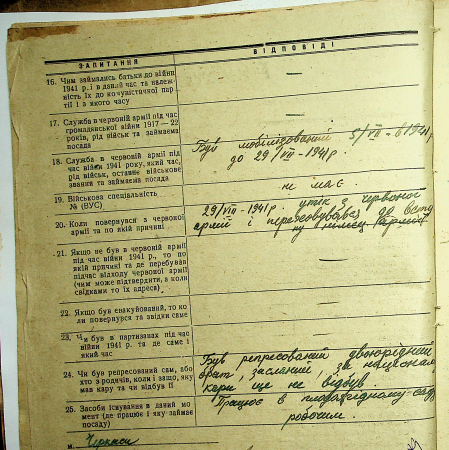 ЗАПИТАННЯ
ВІДПОВІДІ
16. Чим займались батьки до війни
1941 р. і в даний час та належ-
ність їх до комуністичної пар-
тії і з якого часу
—
—
17. Служба в червоній армії під час
громадянської війни 1917—22
років, рід військ та займаєма
посада
—
18. Служба в червоній армії під
час війни 1941 року, який час,
рід військ, останнє військове
званння та займаєма посада
Був мобілізований 5/VII - 1941 р.
до 29/VIII - 1941 р.
19. Військова спеціальність
№ (ВУС)
не має.
20. Коли повернувся з червоної
армії та по якій причині
29/VIII - 1941 р. утік з червоної
армії і переховувався до вступу
німец. армії
21. Якщо не був в червоній армії
під час війни 1941 р., то по
якій причині та де перебував
підчас відходу червоної армії
(чим може підтвердити, а коли
свідками то їх адреса)
—
22. Якщо був евакуйований, то ко-
ли повернувся та звідки саме
—
23. Чи був в партизанах під час
війни 1941 р. та де саме і
який час
—
24. Чи був репресований сам, або
хто з родичів, коли і защо, яку
мав кару та чи відбув її
Був репресований двоюрідний
брат, засланий, за націонал.
кари ще не відбув.
25. Засоби існування в даний мо-
мент (де працює і яку займає
посаду)
Працює в плодоягідному саду
робочим.
м. Черкаси